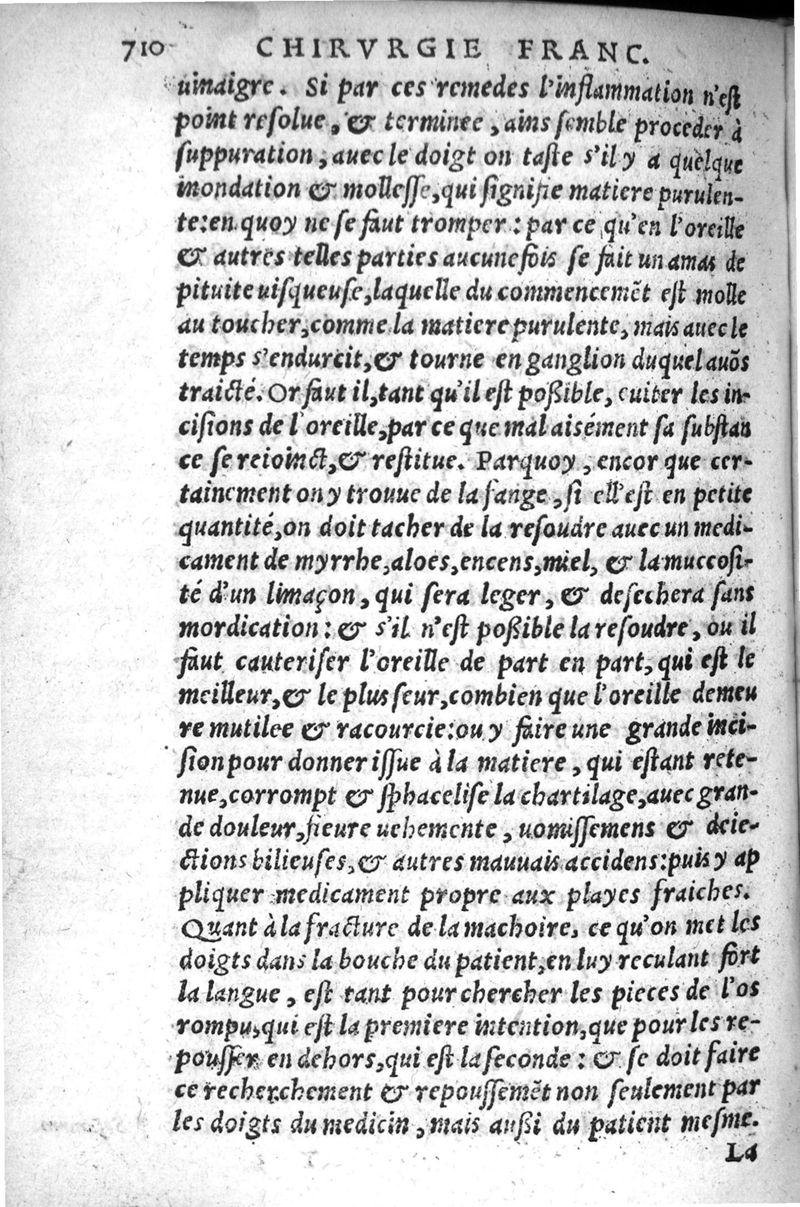 710 CHIRVRGIE FRANC.
uinaigre. Si par ces remedes l'inflammation n'est
point resolue, & terminee, ains semble proceder à
suppuration, auec le doigt on taste s'il y a quelque
inondation & mollesse, qui signifie matiere purulen-
te: en quoy ne se faut tromper: par ce qu'en l'oreille
& autres telles parties aucunefois se fait un amas de
pituite uisqueuse, laquelle du commencemẽt est molle
au toucher, comme la matiere purulente, mais auec le
temps s'endurcit, & tourne en ganglion duquel auõs
traicté. Or faut il, tant qu'il est poßible, euiter les in-
cisions de l'oreille, par ce que malaisément sa substan
ce se reioinct, & restitue. Parquoy, encor que cer-
tainement on y trouue de la fange, si ell'est en petite
quantité, on doit tacher de la resoudre auec un medi-
cament de myrrhe, aloes, encens, miel, & la muccosi-
té d'un limaçon, qui sera leger, & desechera sans
mordication: & s'il n'est poßible la resoudre, ou il
faut cauteriser l'oreille de part en part, qui est le
meilleur, & le plus seur, combien que l'oreille demeu
re mutilee & racourcie: ou y faire une grande inci-
sion pour donner issue à la matiere, qui estant rete-
nue, corrompt & sphacelise la chartilage, auec gran-
de douleur, fieure uehemente, uomissemens & deie-
ctions bilieuses, & autres mauuais accidens: puis y ap
pliquer medicament propre aux playes fraiches.
Quant à la fracture de la machoire, ce qu'on met les
doigts dans la bouche du patient, en luy reculant fort
la langue, est tant pour chercher les pieces de l'os
rompu, qui est la premiere intention, que pour les re-
pousser en dehors, qui est la seconde: & se doit faire
ce recherchement & repoussemẽt non seulement par
les doigts du medicin, mais außi du patient mesme.
La